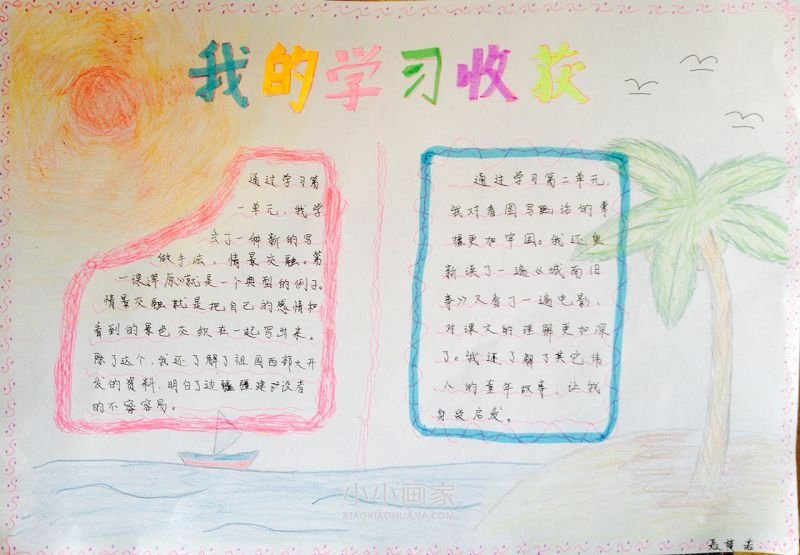 我的学习收获
通过学习第
一单元，我学
会了一种新的写
做手法，情景交融。第
一课《草原》就是一个典型的例子。
情景交融就是把自己的感情和
看到的景色交织在一起写出来。
除了这个，我还了解了祖国西部大开
发的资料，明白了边疆建设者
的不容易。
通过学习第二单元，
我对看图写话的掌
握更加牢固。我还重
新读了一遍《城南旧
事》又看了一遍电影，
对课文的理解更加深
了。我还了解了其它伟
人的童年故事，让我
深受启发。
小小画家
XIAOXIAOHUAJIA.COM